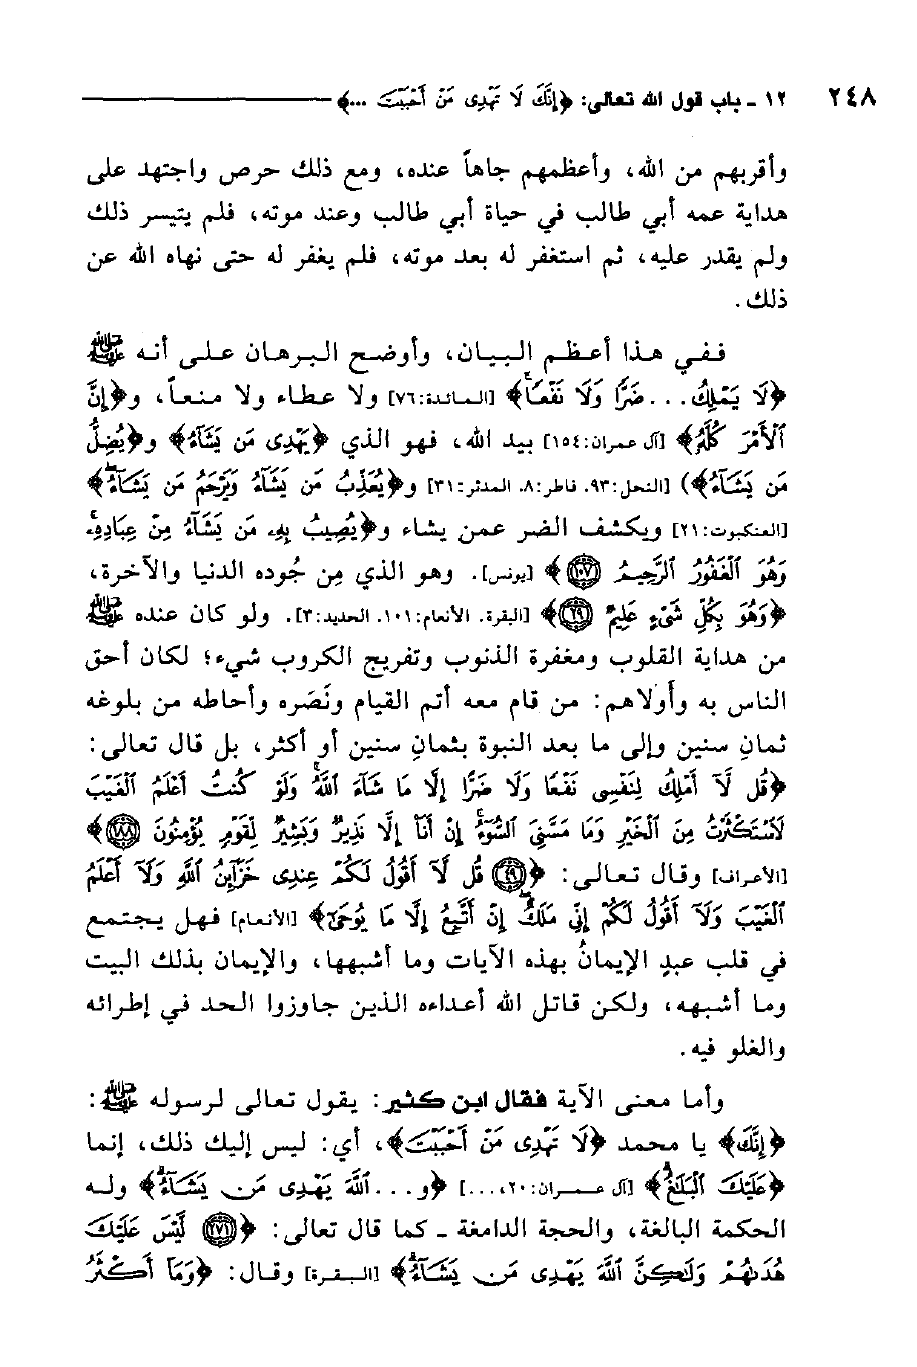 ٢٤٨ ١٢ ـ باب قول الله تعالى: ﴿إِنَّكَ لَا تَهْدِى مَنْ أَحْبَبْتَ ...﴾
وأقربهم من الله، وأعظمهم جاهاً عنده، ومع ذلك حرص واجتهد على
هداية عمه أبي طالب في حياة أبي طالب وعند موته، فلم يتيسر ذلك
ولم يقدر عليه، ثم استغفر له بعد موته، فلم يغفر له حتى نهاه الله عن
ذلك.
ففي هذا أعظم البيان، وأوضح البرهان على أنه ﷺ
﴿لَا يَمْلِكُ... ضَرًّا وَلَا نَفْعًا﴾ [المائدة:٧٦] ولا عطاء ولا منعاً، و﴿إِنَّ
ٱلْأَمْرَ كُلَّهُ﴾ [آل عمران:١٥٤] بيد الله، فهو الذي ﴿يَهْدِى مَن يَشَآءُ﴾ و﴿يُضِلُّ
مَن يَشَآءُ﴾) [النحل:٩٣، فاطر:٨، المدثر:٣١] و﴿يُعَذِّبُ مَن يَشَآءُ وَيَرْحَمُ مَن يَشَآءُ﴾
[العنكبوت:٢١] ويكشف الضر عمن يشاء و﴿يُصِيبُ بِهِۦ مَن يَشَآءُ مِنْ عِبَادِهِۦ
وَهُوَ ٱلْغَفُورُ ٱلرَّحِيمُ ١٠٧﴾ [يونس]. وهو الذي مِن جُوده الدنيا والآخرة،
﴿وَهُوَ بِكُلِّ شَىْءٍ عَلِيمٌ ٢٩﴾ [البقرة، الأنعام:١٠١، الحديد:٣]. ولو كان عنده ﷺ
من هداية القلوب ومغفرة الذنوب وتفريج الكروب شيء؛ لكان أحق
الناس به وأولاهم: من قام معه أتم القيام ونَصَره وأحاطه من بلوغه
ثمانِ سنين وإلى ما بعد النبوة بثمانِ سنين أو أكثر، بل قال تعالى:
﴿قُل لَّآ أَمْلِكُ لِنَفْسِى نَفْعًا وَلَا ضَرًّا إِلَّا مَا شَآءَ ٱللَّهُ وَلَوْ كُنتُ أَعْلَمُ ٱلْغَيْبَ
لَٱسْتَكْثَرْتُ مِنَ ٱلْخَيْرِ وَمَا مَسَّنِىَ ٱلسُّوٓءُ إِنْ أَنَا۠ إِلَّا نَذِيرٌ وَبَشِيرٌ لِّقَوْمٍ يُؤْمِنُونَ ١٨٨﴾
[الأعراف] وقال تعالى: ﴿٤٩ قُل لَّآ أَقُولُ لَكُمْ عِندِى خَزَآئِنُ ٱللَّهِ وَلَآ أَعْلَمُ
ٱلْغَيْبَ وَلَآ أَقُولُ لَكُمْ إِنِّى مَلَكٌ إِنْ أَتَّبِعُ إِلَّا مَا يُوحَىٰٓ﴾ [الأنعام] فهل يجتمع
في قلب عبدٍ الإيمانُ بهذه الآيات وما أشبهها، والإيمان بذلك البيت
وما أشبهه، ولكن قاتل الله أعداءه الذين جاوزوا الحد في إطرائه
والغلو فيه.
وأما معنى الآية فقال ابن كثير: يقول تعالى لرسوله ﷺ:
﴿إِنَّكَ﴾ يا محمد ﴿لَا تَهْدِى مَنْ أَحْبَبْتَ﴾، أي: ليس إليك ذلك، إنما
﴿عَلَيْكَ ٱلْبَلَٰغُ﴾ [آل عمران:٢٠،...] ﴿و...ٱللَّهَ يَهْدِى مَن يَشَآءُ﴾ وله
الحكمة البالغة، والحجة الدامغة ـ كما قال تعالى: ﴿٢٧١ لَّيْسَ عَلَيْكَ
هُدَىٰهُمْ وَلَٰكِنَّ ٱللَّهَ يَهْدِى مَن يَشَآءُ﴾ [البقرة] وقال: ﴿وَمَآ أَكْثَرُ